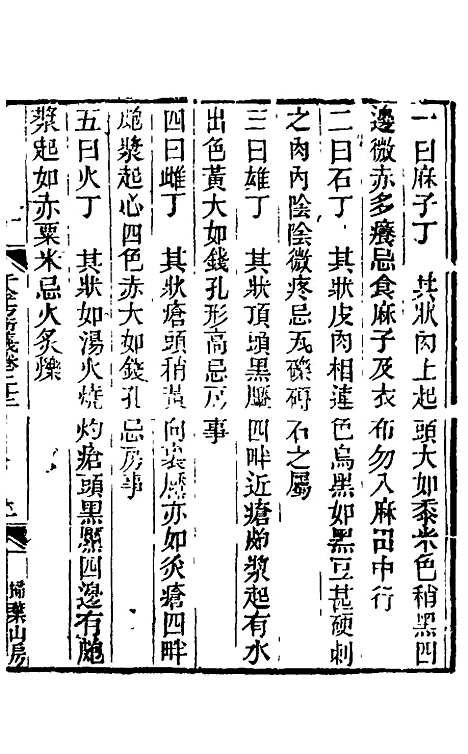 一曰麻子丁　其狀肉上起頭大如黍米色稍黑四
邊微赤多癢忌食麻子及衣布勿入麻田中行
二曰石丁　其狀皮肉相連色烏黑如黑豆甚硬刺
之肉內陰陰微疼忌瓦礫磚石之屬
三曰雄丁　其狀頂頭黑黶四畔近瘡皰漿起有水
出色黃大如錢孔形高忌房事
四曰雌丁　其狀瘡頭稍黃向裏黶亦如灸瘡四畔
皰漿起心四色赤大如錢孔忌房事
五曰火丁　其狀如湯火燒灼瘡頭黑黶四邊有皰
漿起如赤粟米忌火炙爍
千金方衍義卷二十二
掃葉山房